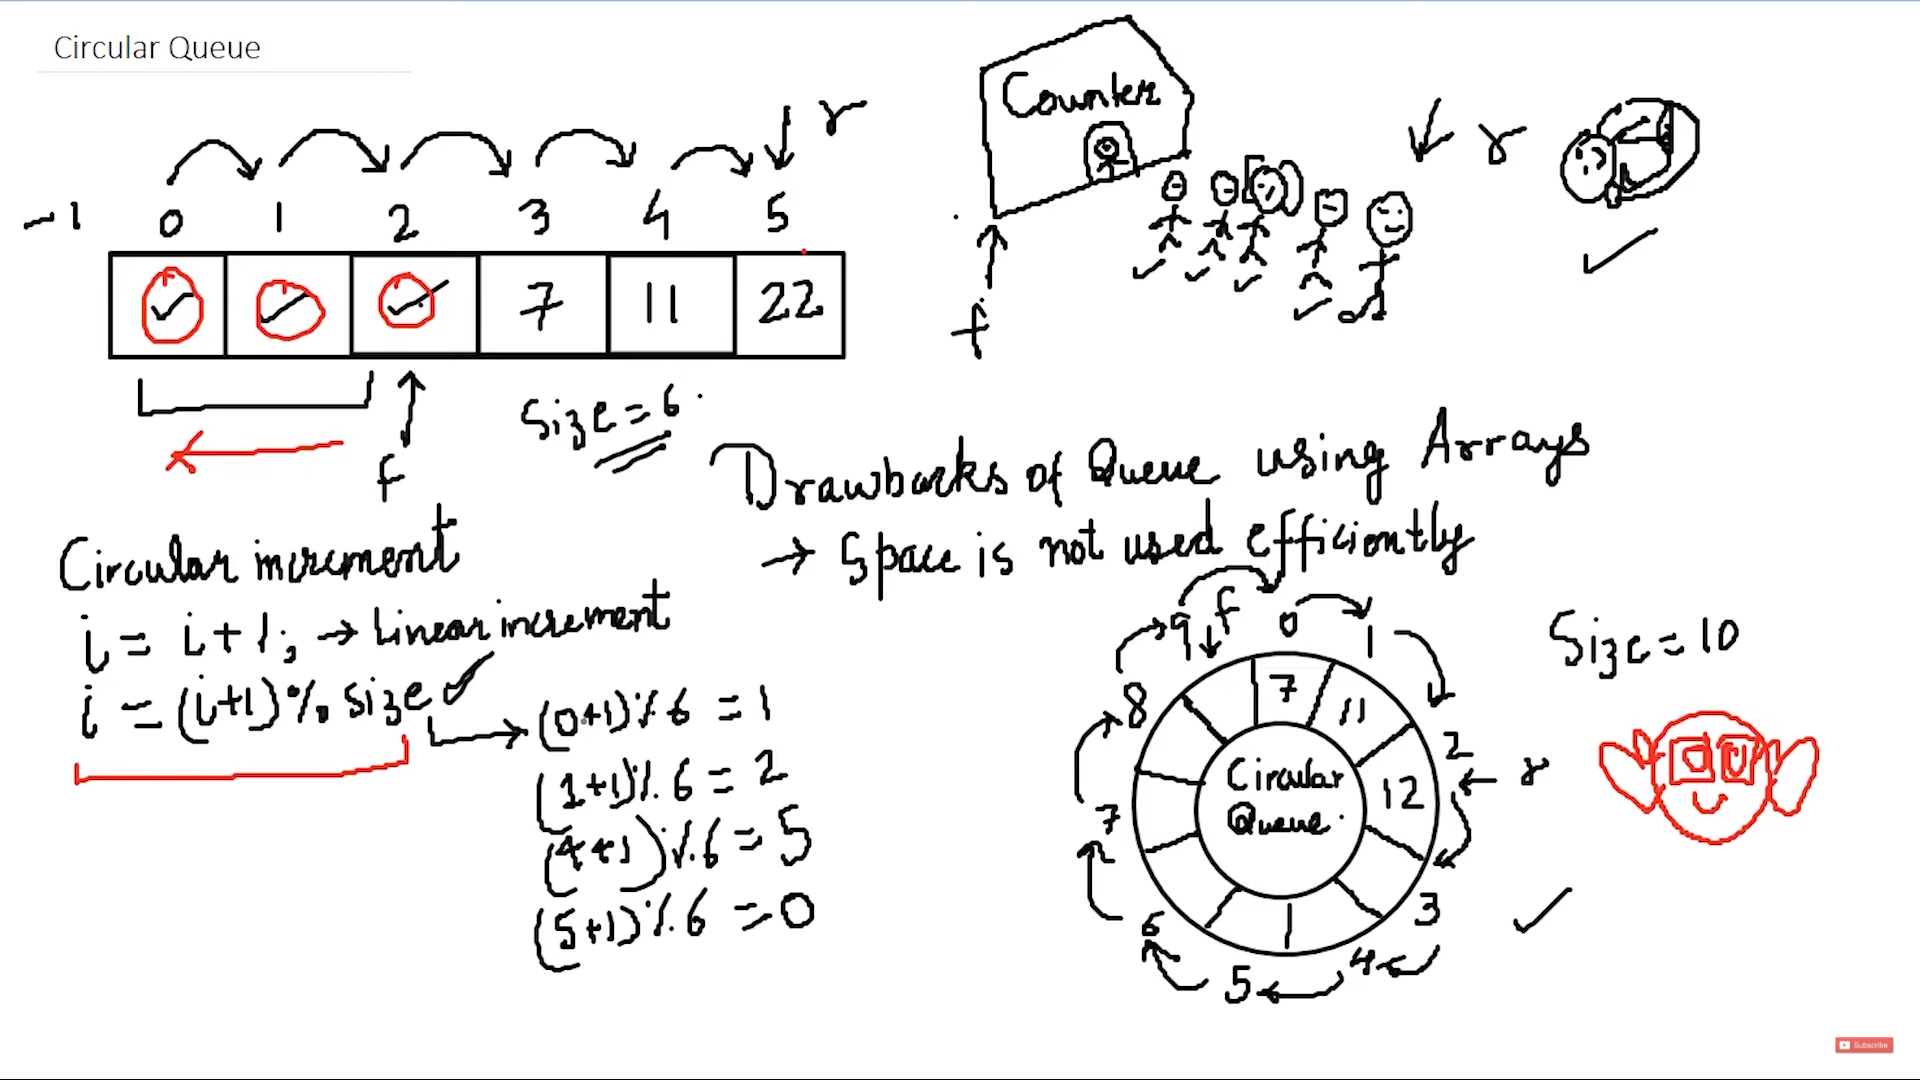 Circular Queue
Counter
r
r
-1 0 1 2 3 4 5
7 11 22
f
f
Size = 6
Drawbacks of Queue using Arrays
→ Space is not used efficiently
Circular increment
i = i + 1; → Linear increment
i = (i+1) % size
(0+1) % 6 = 1
(1+1) % 6 = 2
(4+1) % 6 = 5
(5+1) % 6 = 0
Size = 10
f
9 0 1
8 7 11 2
7 12 r
Circular
Queue
6 3
5 4
Subscribe